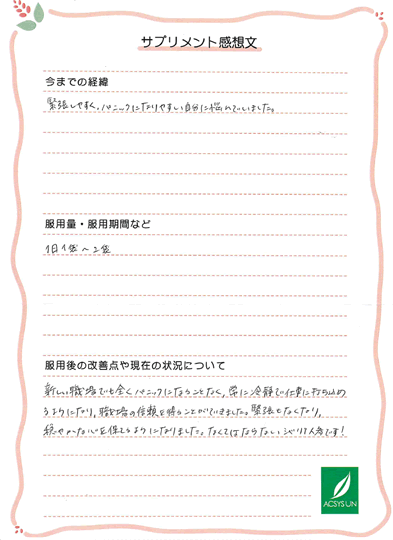 サプリメント感想文
今までの経緯
緊張しやすく、パニックになりやすい自分に悩んでいました。
服用量・服用期間など
1日1袋〜2袋
服用後の改善点や現在の状況について
新しい職場でも全くパニックになることなく、常に冷静で仕事に打ち込め
るようになり、職場の信頼を得ることができました。緊張もなくなり、
穏やかな心を保てるようになりました。なくてはならない
ACSYSUN